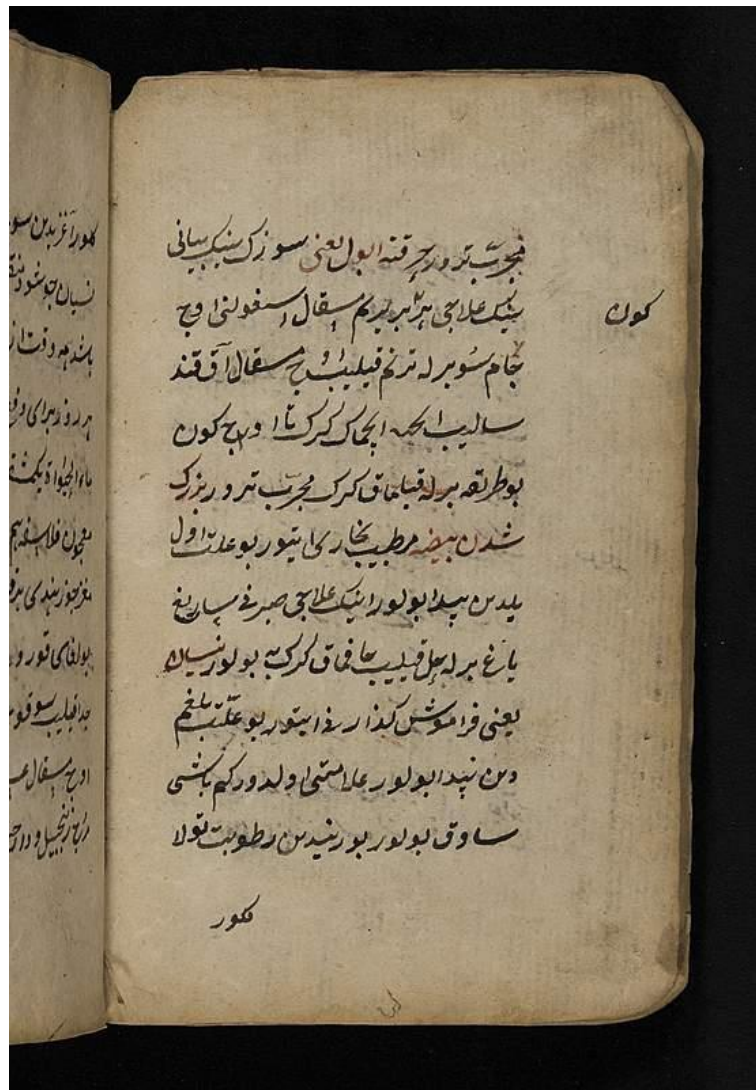 مجرب ترور حرقة البول یعنی سوزک نینک بیانی
نینک علاجی هر بریرکم مسقال اسفولنی اوچ
کون
جام سو برله ترنم قیلیب اوچ مسقال آق قند
سالیب ایچماک کرک تا اوچ کون
بو طریقه برله قیلماق کرک مجرب ترور بزرک
شدن بیضه مرطیب بخاری ایتور بو علت اول
یلدین پیدا بولور انینک علاجی صبرنی ساریغ
یاغ برله حل قیلیب یاقماق کرک به بولور نسیان
یعنی فراموش کذارنی ایتور بو علت بلغم
دین پیدا بولور علامتی اولدورکم باشی
ساوق بولور بورنیدین رطوبت تولا
کلور
کلور آغزیدین سو
نسیان
باشد هه وقت از
هر روز برای دفع
ماء الحیواة یکمشقا
معجون فلاسفه هم
مغز جوز هندی هر
بولغای تورو
جدا قیلیب سو قو
اوچ مسقال
زنجبیل و دار